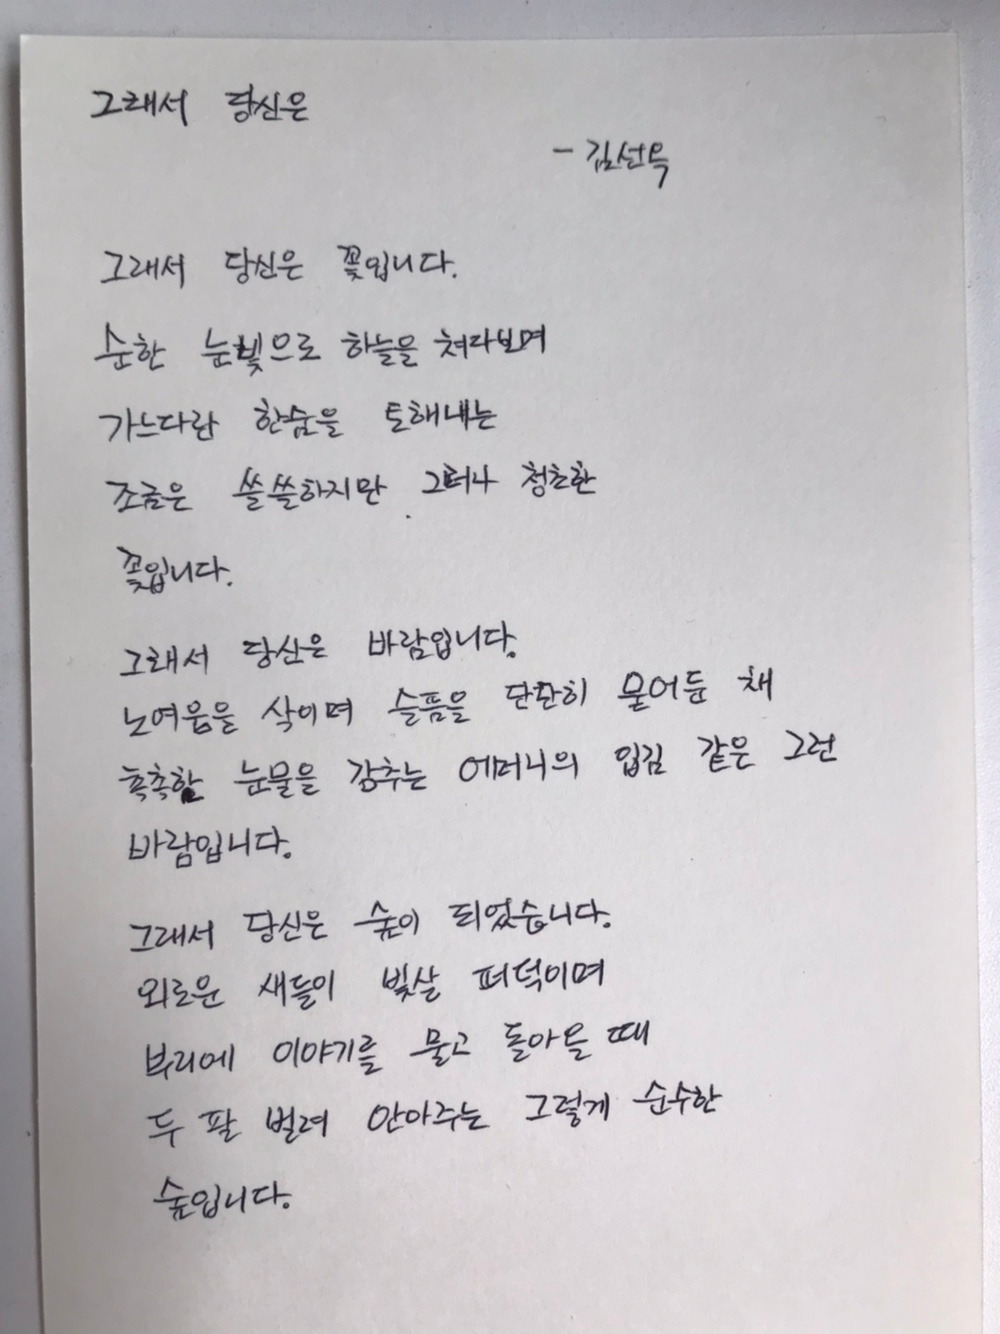 그래서 당신은
- 김선욱
그래서 당신은 꽃입니다.
순한 눈빛으로 하늘을 쳐다보며
가느다란 한숨을 토해내는
조금은 쓸쓸하지만 그러나 청초한
꽃입니다.
그래서 당신은 바람입니다.
노여움을 삭이며 슬픔을 단단히 묻어둔 채
촉촉한 눈물을 감추는 어머니의 입김 같은 그런
바람입니다.
그래서 당신은 숲이 되었습니다.
외로운 새들이 빛살 퍼덕이며
부리에 이야기를 물고 돌아올 때
두 팔 벌려 안아주는 그렇게 순수한
숲입니다.